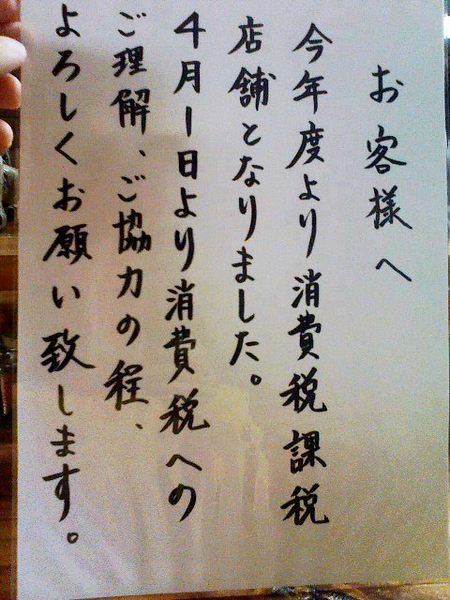 お客様へ
今年度より消費税課税
店舗となりました。
4月1日より消費税への
ご理解、ご協力の程、
よろしくお願い致します。